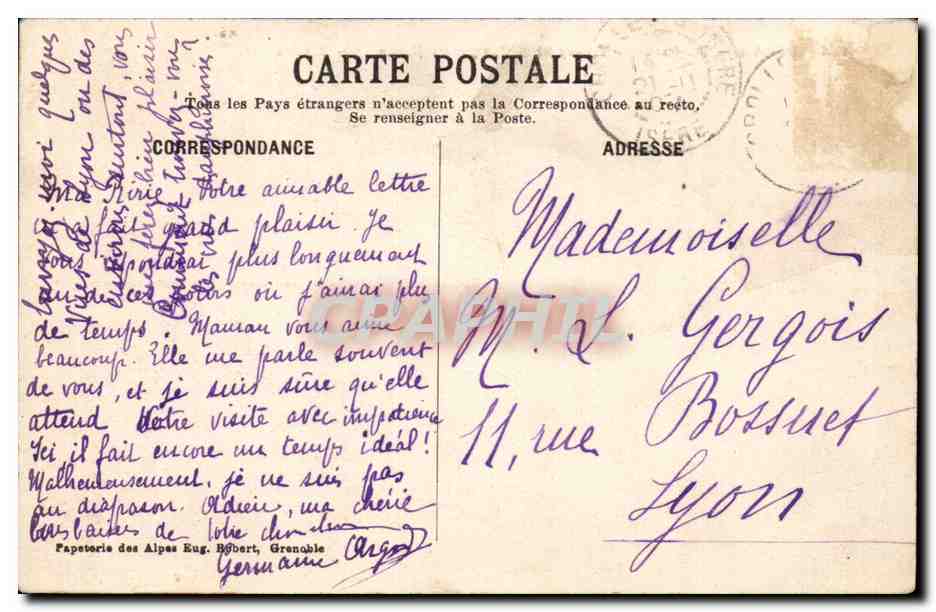 CARTE POSTALE
Tous les Pays étrangers n'acceptent pas la Correspondance au recto.
Se renseigner à la Poste.
CORRESPONDANCE
ADRESSE
Ma Votre aimable lettre
fait grand plaisir. Je
vous répondrai plus longuement
un de ces jours où j'aurai plus
de temps. Maman vous aime
beaucoup. Elle me parle souvent
de vous, et je suis sûre qu'elle
attend Votre visite avec impatience
Ici il fait encore un temps idéal!
Malheureusement, je ne suis pas
au diapason. Adieu, ma chérie
bons baisers de votre
Germaine
quelques
Vues de Lyon ou des
environs surtout, vous
me ferez bien plaisir
Comment trouvez-vous
Mademoiselle
M. L. Gergois
11, rue Bossuet
Lyon
Papeterie des Alpes Eug. Robert, Grenoble
ISÈRE
CPAPHIL